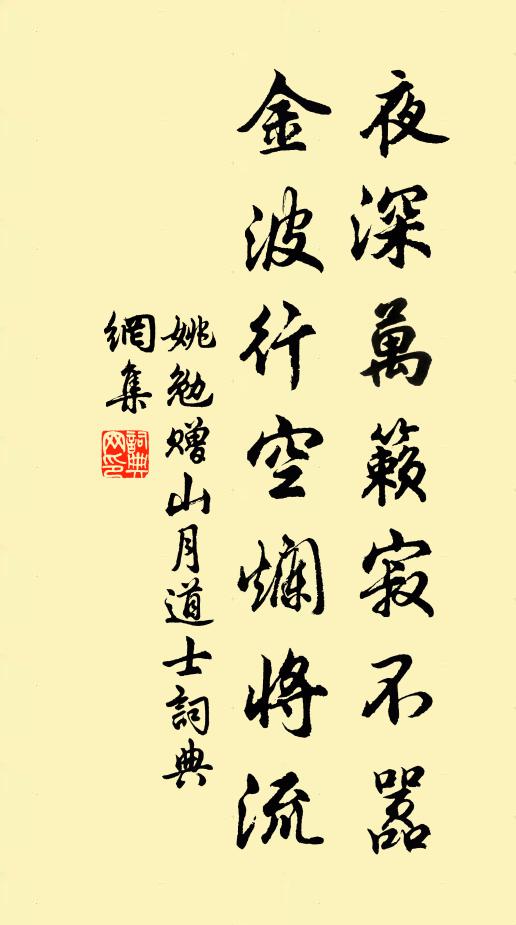 夜深萬籟寂不嚣
金波行空爛將流
姚勉贈山月道士詞典
網集
詞典
网印